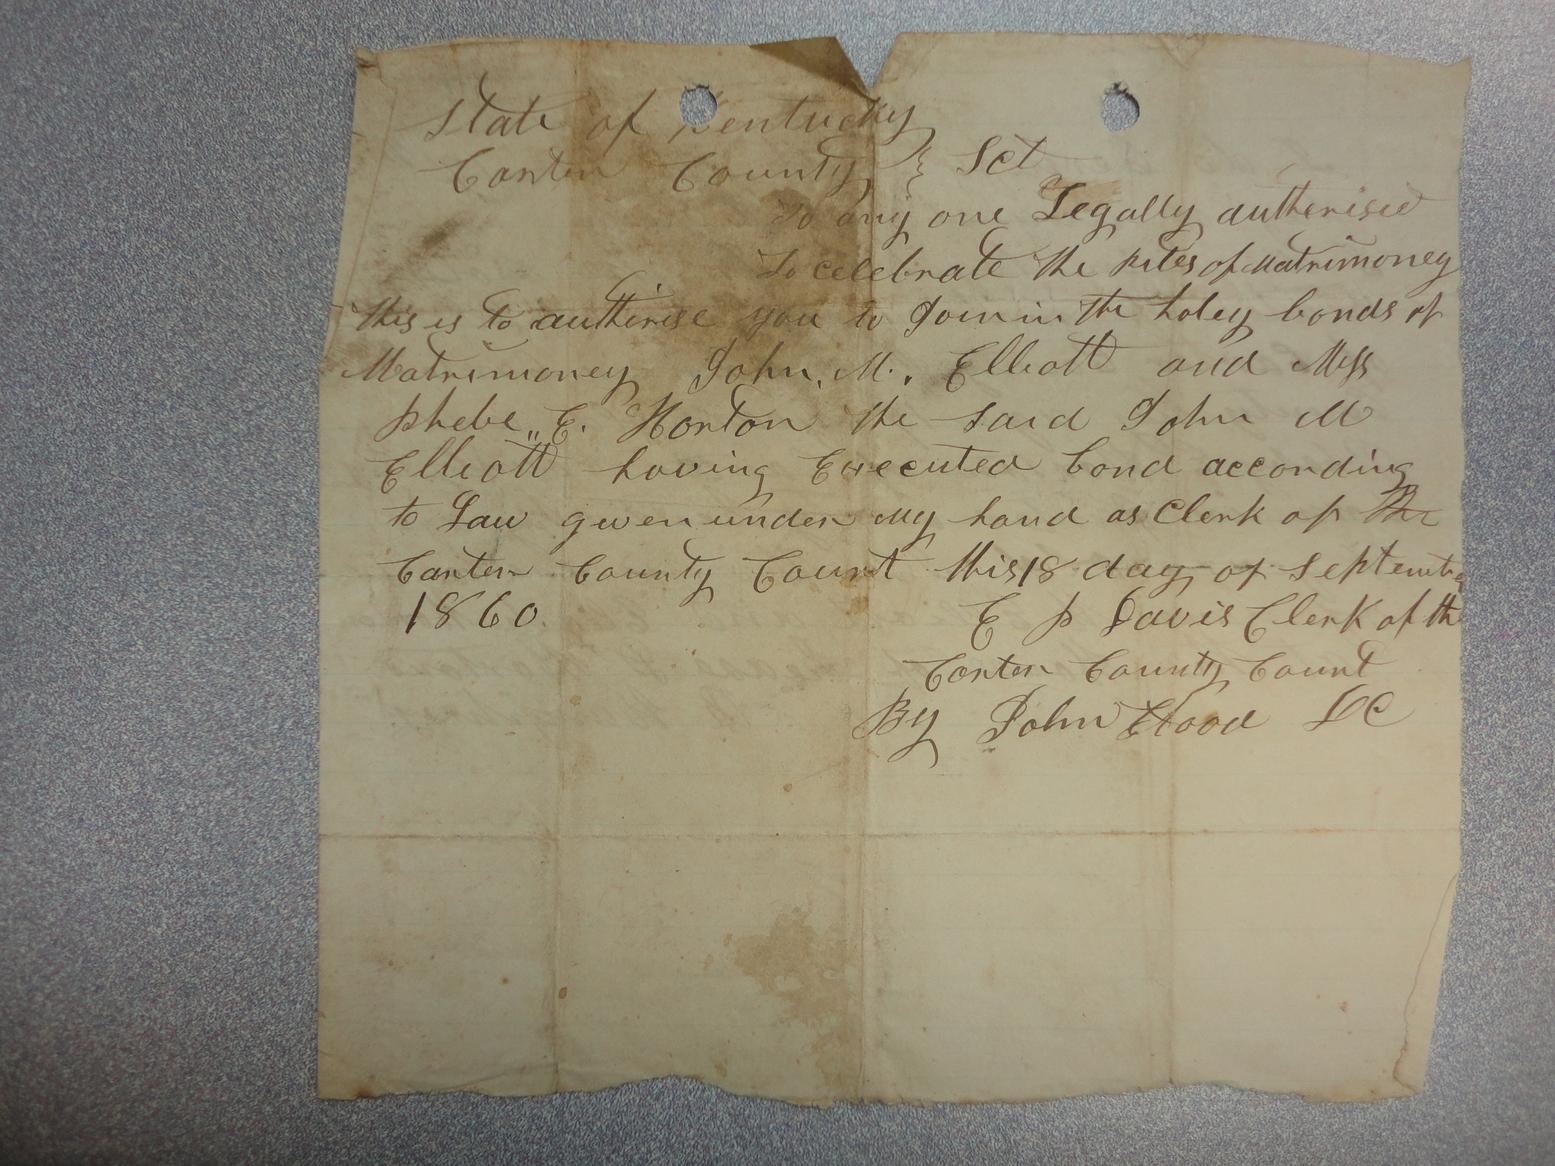 State of Kentucky
Carter County } Sct
To any one Legally autherised
To celebrate the rites of Matrimoney
this is to autherise you to Join in the holey bonds of
Matrimoney John. M. Elliott and Miss
Phebe „ E. Horton the said John M
Elliott having Executed bond according
to Law given under My hand as Clerk of the
Carter County Court this 18 day of September
1860.
E P Davis Clerk of the
Carter County Court
By John Hood DC